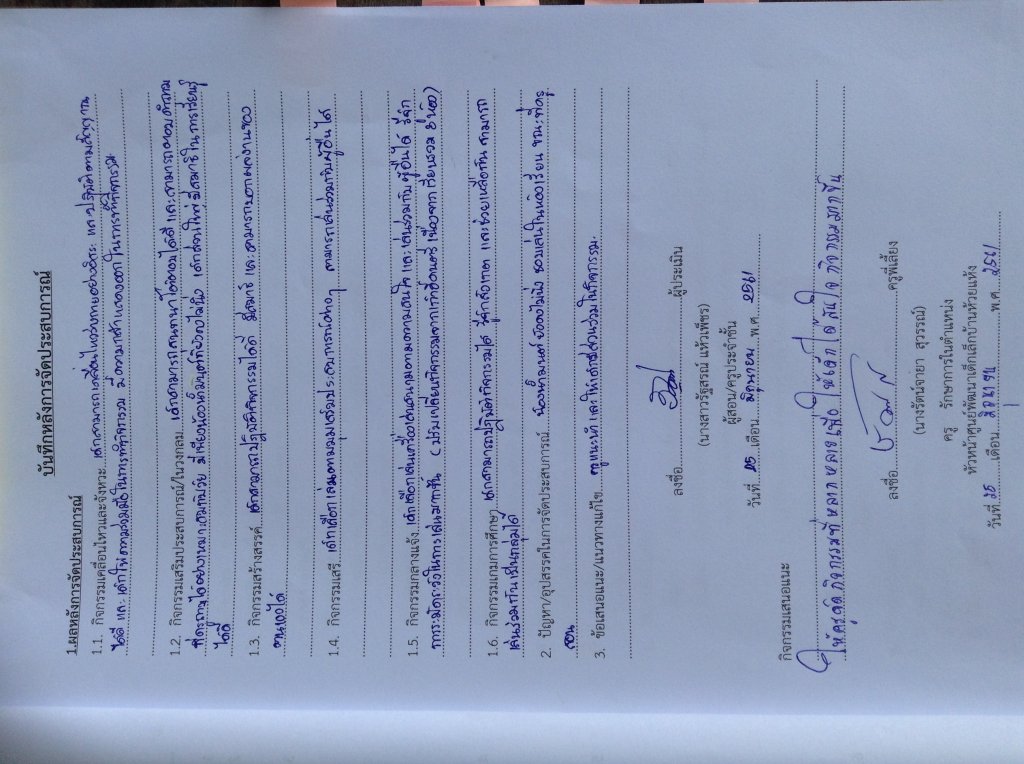 บันทึกหลังการจัดประสบการณ์
1.ผลหลังการจัดประสบการณ์
1.1. กิจกรรมเคลื่อนไหวและจังหวะ เด็กสามารถเคลื่อนไหวร่างกายอย่างอิสระ และปฏิบัติตามสัญญาณ
ได้ดี และ เด็กให้ความร่วมมือในการทำกิจกรรม มีความกล้าแสดงออกในการทำกิจกรรม
1.2. กิจกรรมเสริมประสบการณ์/ในวงกลม เด็กสามารถสนทนาโต้ตอบได้ดี และสามารถตอบคำถาม
ที่ครูถามได้อย่างเหมาะสมกับวัย มีเพียงน้องหิ้มมนต์ที่ยังไม่นิ่ง เด็กส่วนใหญ่มีสมาธิในการเรียนรู้
ได้ดี
1.3. กิจกรรมสร้างสรรค์ เด็กสามารถปฏิบัติกิจกรรมได้ดี มีสมาธิ และสามารถบอกผลงานของ
ตนเองได้
1.4. กิจกรรมเสรี เด็กเลือกเล่นตามมุมเสริมประสบการณ์ต่างๆ สามารถเล่นร่วมกับผู้อื่นได้
1.5. กิจกรรมกลางแจ้ง เด็กเลือกเล่นเครื่องเล่นสนามตามความสนใจ และเล่นร่วมกับผู้อื่นได้ รู้จัก
การระมัดระวังในการเล่นมากขึ้น (ปรับเปลี่ยนกิจกรรมจาก เนื่องจาก เรียนรวม 8 ห้อง)
1.6. กิจกรรมเกมการศึกษา เด็กสามารถปฏิบัติกิจกรรมได้ รู้จักรอคอย และช่วยเหลือกัน สามารถ
เล่นร่วมกันเป็นกลุ่มได้
2. ปัญหา/อุปสรรคในการจัดประสบการณ์ น้องหิ้มมนต์ ยังคงไม่นิ่ง ชอบเล่นในห้องเรียน ขณะที่ครู
สอน
3. ข้อเสนอแนะ/แนวทางแก้ไข ครูแนะนำ และให้เด็กมีส่วนร่วมในกิจกรรม
ลงชื่อ ผู้ประเมิน
(นางสาวรัฐสรณ์ แห้วเพ็ชร)
ผู้สอน/ครูประจำชั้น
วันที่ 25 เดือน มิถุนายน พ.ศ. 2561
กิจกรรมเสนอแนะ
ให้ครูจัดกิจกรรมที่หลากหลาย เพื่อให้เด็กได้สนใจกิจกรรมมากขึ้น
ลงชื่อ ครูพี่เลี้ยง
(นางรัตน์จายา สุวรรณ์)
ครู รักษาการในตำแหน่ง
หัวหน้าศูนย์พัฒนาเด็กเล็กบ้านห้วยแห้ง
วันที่ 25 เดือน มิถุนายน พ.ศ. 2561